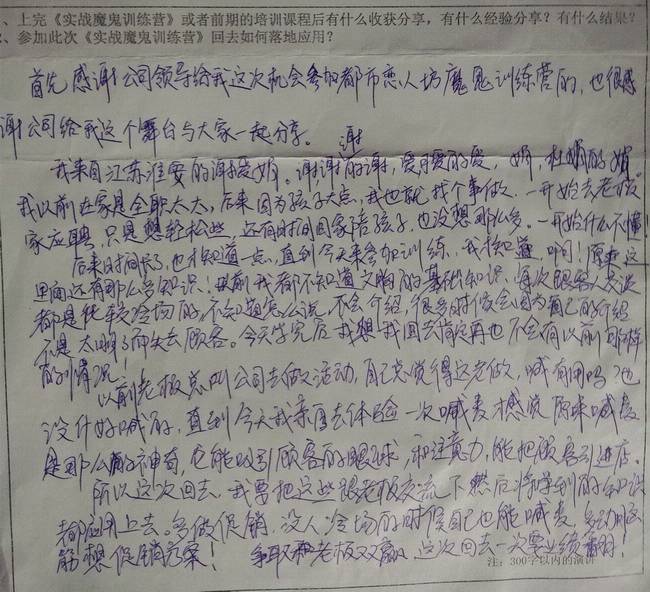 、上完《实战魔鬼训练营》或者前期的培训课程后有什么收获分享，有什么经验分享？有什么结果？
、参加此次《实战魔鬼训练营》回去如何落地应用？
首先感谢公司领导给我这次机会参加都市恋人坊魔鬼训练营的，也很感
谢公司给我这个舞台与大家一起分享。
我来自江苏淮安的谢爱娟。谢，谢谢的谢，爱，可爱的爱，娟，杜鹃的娟。
我以前在家是全职太太，后来因为孩子大点，我也就找个事做。一开始去老板
家应聘，只是想轻松些，还有时间回家陪孩子，也没想那么多。一开始什么不懂！
后来时间长了，也才知道一点，直到今天来参加训练，我才知道，啊！原来这
里面还有那么多知识！以前我都不知道文胸的基础知识，每次跟客人交谈
都是比较冷场的，不知道怎么说，不会介绍，很多时候会因为自己的介绍
不是太明了而失去顾客。今天学完后我想我回去肯定再也不会有以前那样
的情况！
以前老板总叫公司去做活动，自己总觉得这老做，喊有用吗？也
没什好喊的，直到今天我亲自去体验一次喊麦才感觉原来喊麦
是那么的神奇，它能吸引顾客的眼球，和注意力，能把顾客引进店。
所以这次回去，我要把这些跟老板交流下然后将学到的知识
都应用上去。多做促销，没人冷场的时候自己也能喊麦！多动脑
筋想促销方案！争取和老板双赢，这次回去一次要业绩翻翻！
注：300字以内的演讲